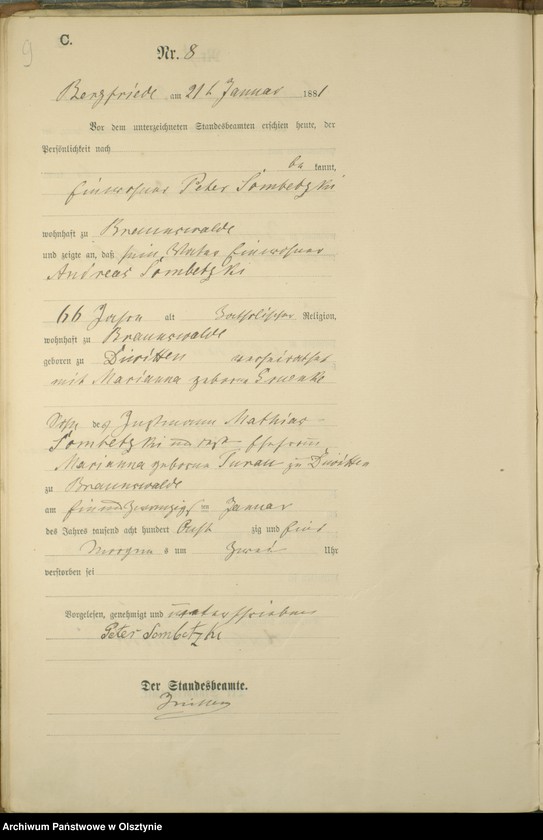 9
C.
Nr. 8
Bergfriede am 21t Januar 1881
Vor dem unterzeichneten Standesbeamten erschien heute, der
Persönlichkeit nach
be kannt,
Einwohner Peter Sombetzki
wohnhaft zu Braunswalde
und zeigte an, daß sein Vater Einwohner
Andreas Sombetzki
66 Jahre alt katholischer Religion,
wohnhaft zu Braunswalde
geboren zu Diwitten verheirathet
mit Marianna geborne
Sohn des Instmann Mathias
Sombetzki und Ehefrau
Marianna geborne Turau zu Diwitten
zu Braunswalde
am Einundzwanzigsten Januar
des Jahres tausend acht hundert Acht zig und Eins
Morgens um Zwei Uhr
verstorben sei
Vorgelesen, genehmigt und unterschrieben
Peter Sombetzki
Der Standesbeamte.
Archiwum Państwowe w Olsztynie